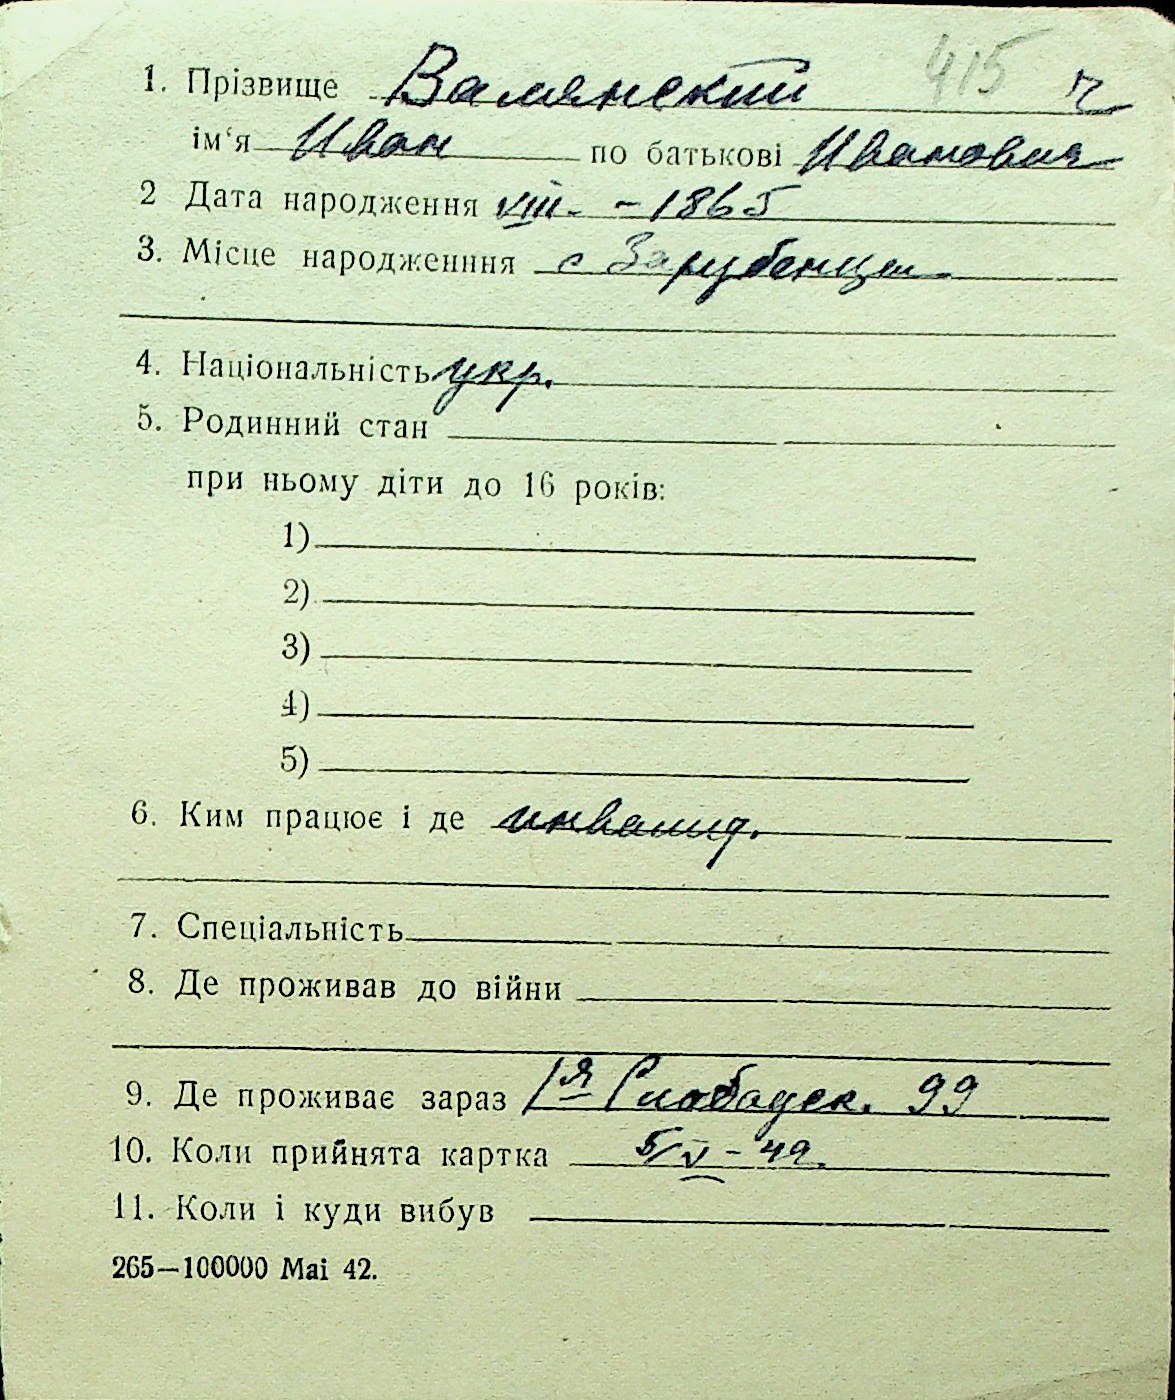 415
1. Прізвище Валянский ч
ім‘я Иван по батькові Иванович
2 Дата народження VIII - 1865
3. Місце народженння с Зарубенцы
4. Національність укр.
5. Родинний стан
при ньому діти до 16 років:
1)
2)
3)
4)
5)
6. Ким працює і де инвалид.
7. Спеціальність
8. Де проживав до війни
9. Де проживає зараз 1я Слободск. 99
10. Коли прийнята картка 5/V - 42.
11. Коли і куди вибув
265—100000 Mai 42.